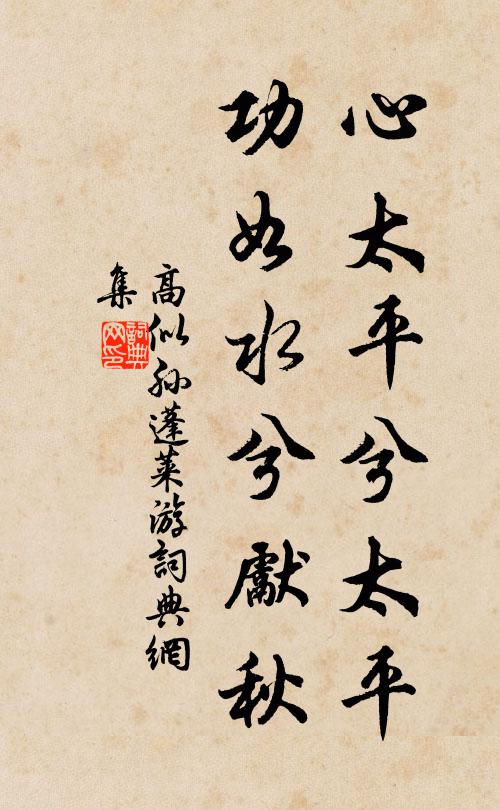 心太平兮太平
功如水兮獻秋
高似孫蓬萊游詞典網
集
詞典
网印